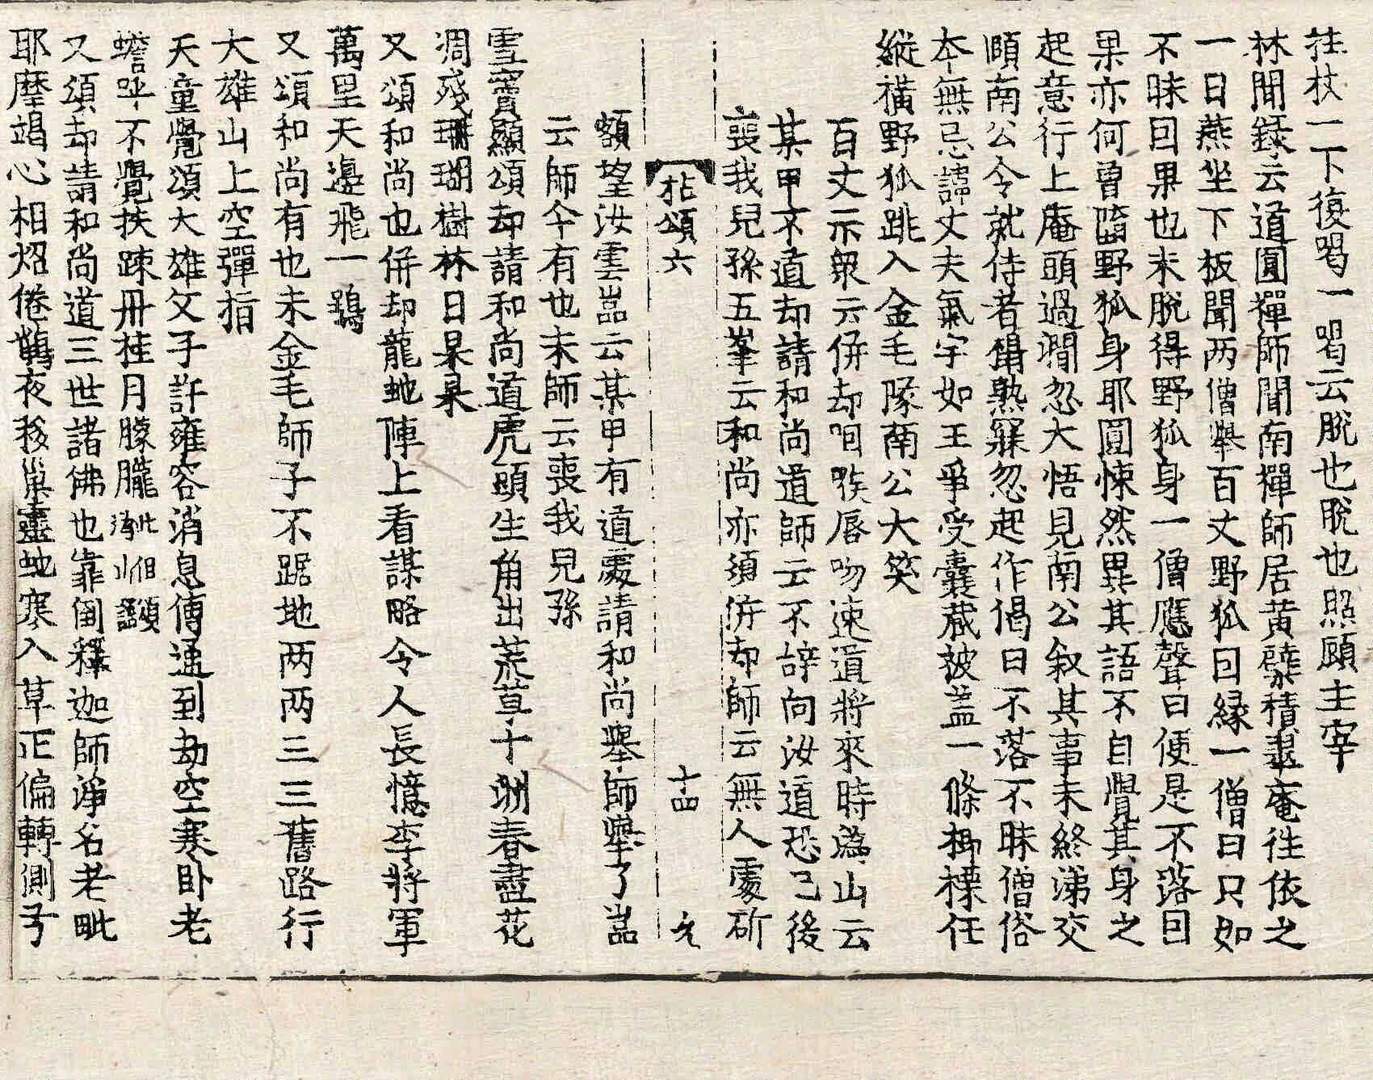 拄杖一下復喝一喝云脫也脫也照顧主宰
林間錄云道圓禪師聞南禪師居黃檗積翠庵徃依之
一日燕坐下板聞两僧舉百丈野狐因緣一僧曰只如
不昧因果也未脫得野狐身一僧應聲曰便是不落因
果亦何曾墮野狐身耶圓悚然異其語不自覺其身之
起意行上庵頭過澗忽大悟見南公叙其事未終涕交
頤南公令就侍者榻熟寐忽起作偈曰不落不昧僧俗
本無忌諱丈夫氣宇如王爭受囊藏被盖一條楖𣗖任
縱橫野狐跳入金毛隊南公大笑
百丈示衆云併却咽喉唇吻速道將來時溈山云
某甲不道却請和尚道師云不辝向汝道恐已後
喪我兒孫五峯云和尚亦須併却師云無人處斫
拈頌六 十四 允
額望汝雲嵓云某甲有道處請和尚舉師舉了嵓
云師今有也未師云喪我兒孫
雪竇顯頌却請和尚道虎頭生角出荒草十洲春盡花
凋殘珊瑚樹林日杲杲
又頌和尚也併却龍虵陣上看謀略令人長憶李將軍
萬里天邊飛一鶚
又頌和尚有也未金毛師子不踞地两两三三舊路行
大雄山上空彈指
天童覺頌大雄父子許雍容消息傳通到劫空寒卧老
蟾呼不覺扶踈丹桂月朦朧 此頌
又頌却請和尚道三世諸佛也靠倒釋迦師淨名老毗
耶摩竭心相炤倦鶴夜移巢靈虵寒入草正偏轉側兮